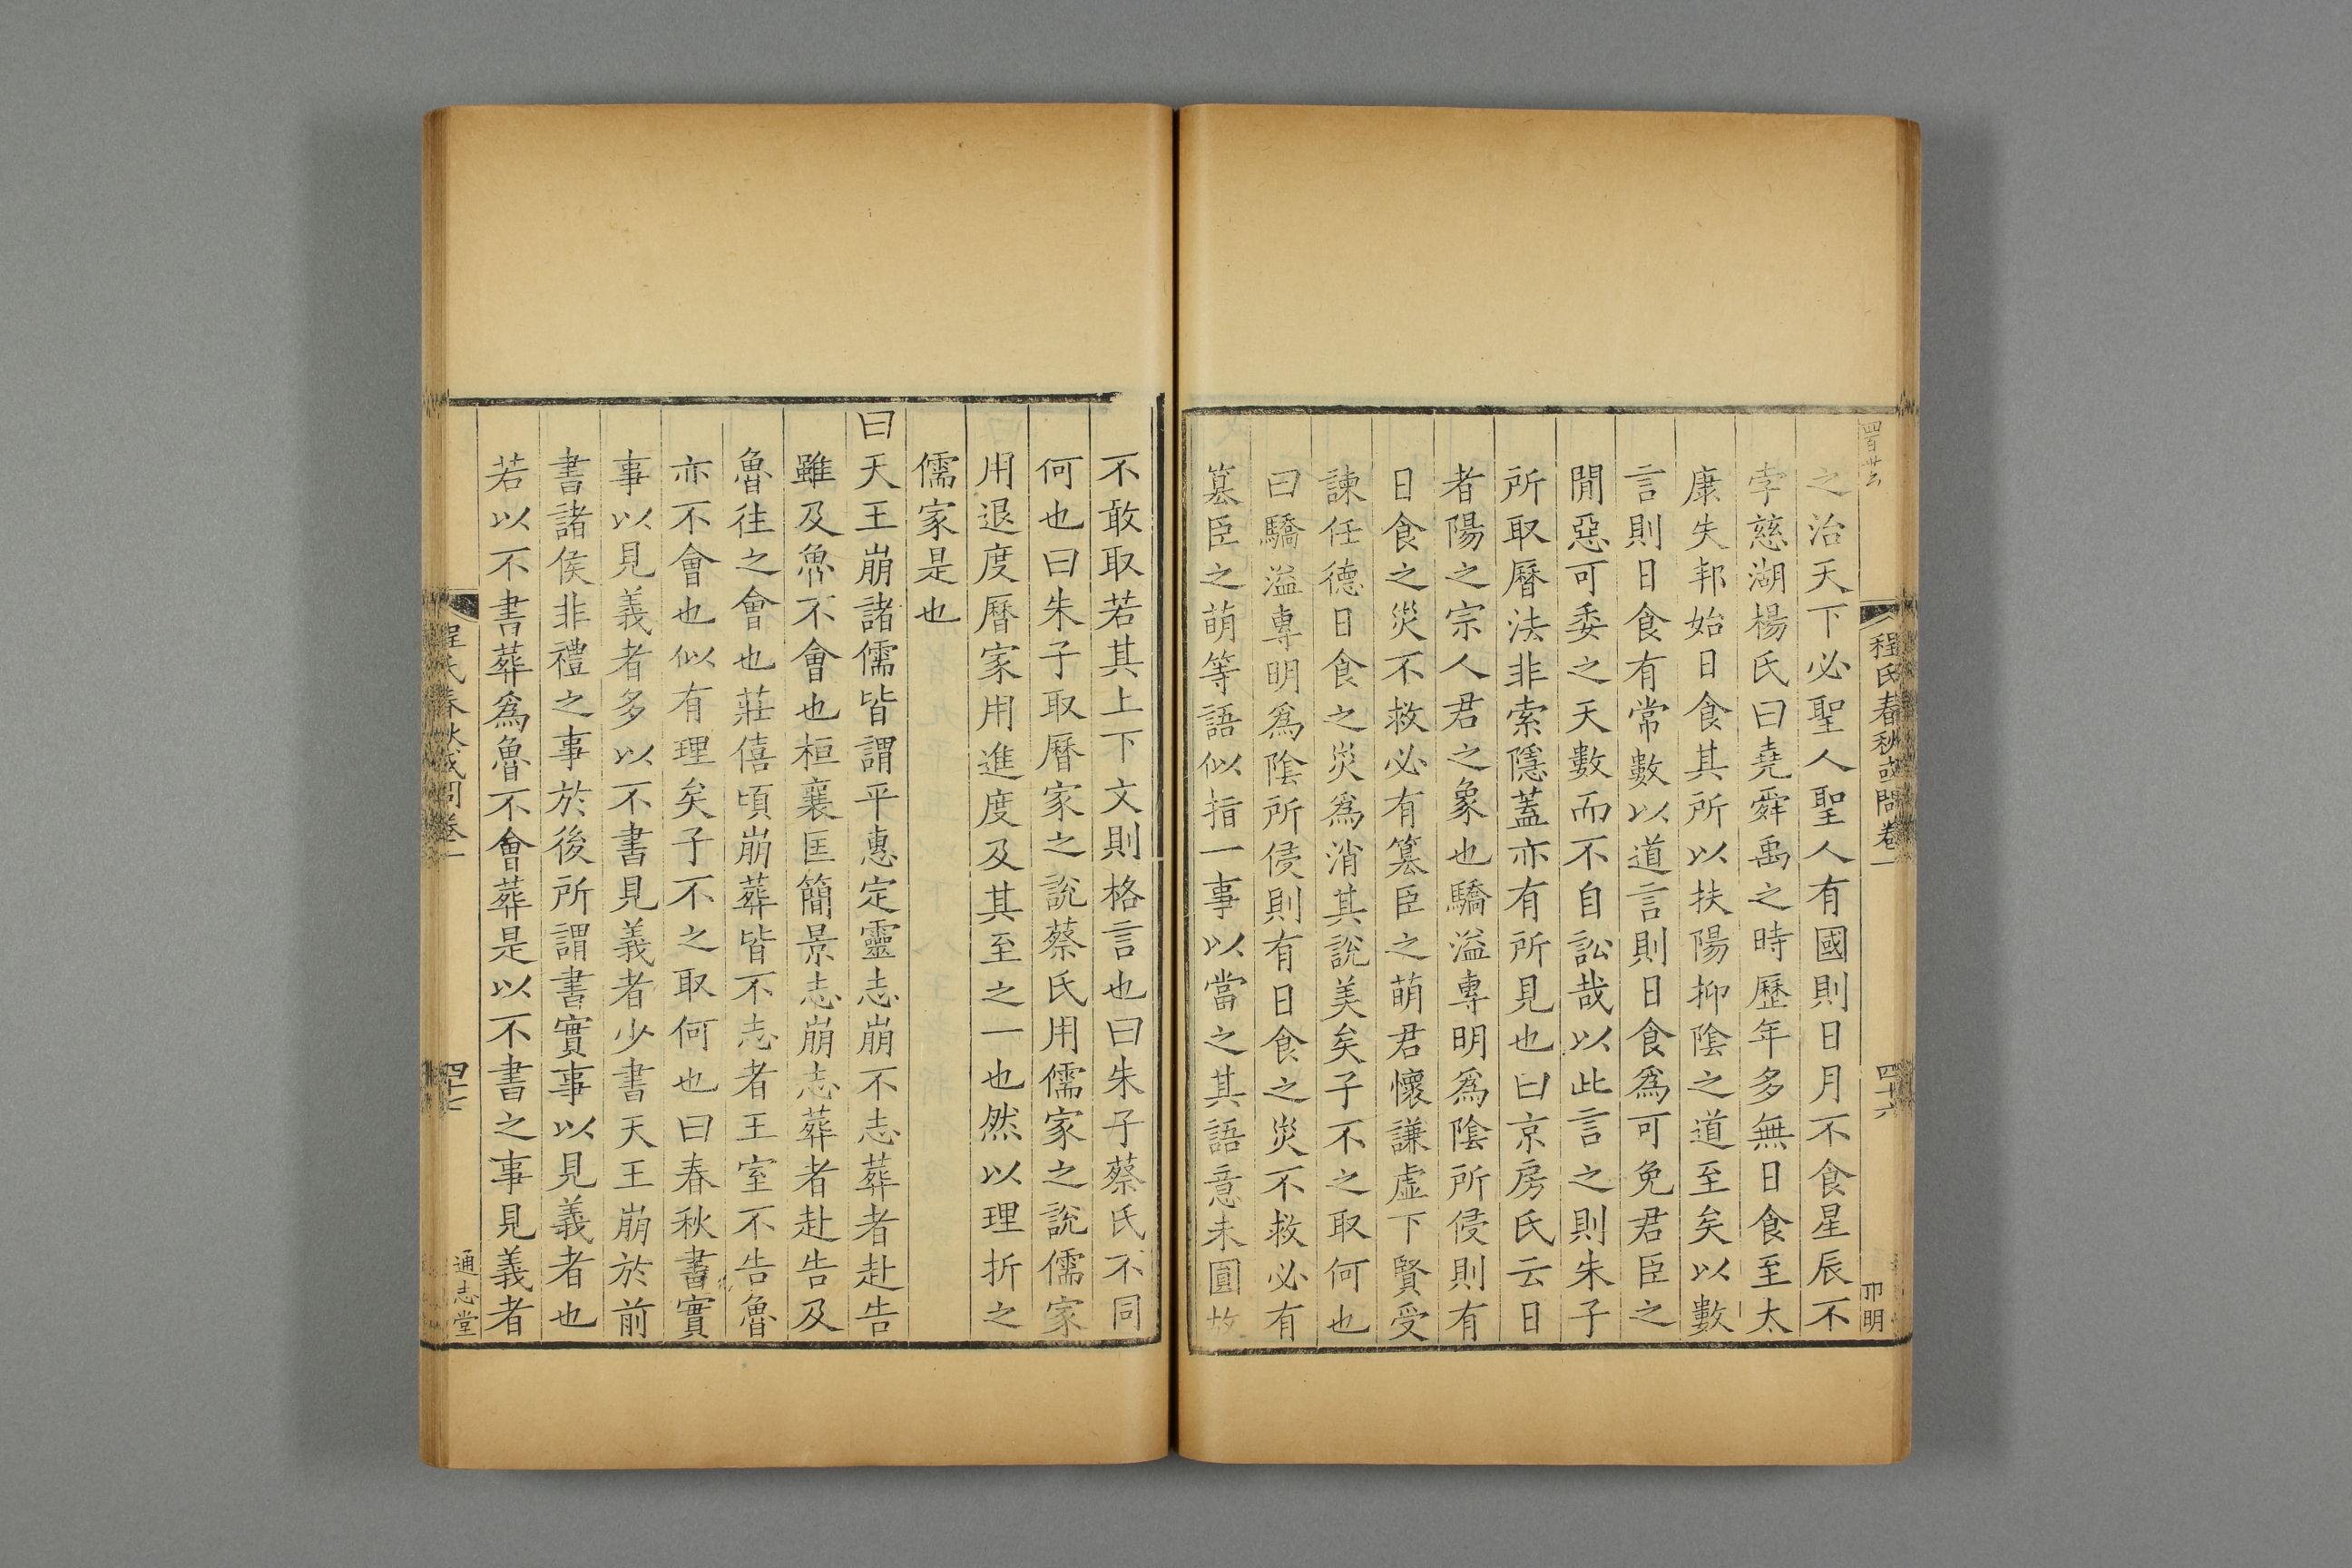 程氏春秋或問卷一
四十六
之治天下必聖人聖人有國則日月不食星辰不
孛慈湖楊氏曰堯舜禹之時歷年多無日食至太
康失邦始日食其所以扶陽抑陰之道至矣以數
言則日食有常數以道言則日食爲可免君臣之
閒惡可委之天數而不自訟哉以此言之則朱子
所取曆法非索隱蓋亦有所見也曰京房氏云日
者陽之宗人君之象也驕溢專明爲陰所侵則有
日食之災不救必有簒臣之萌君懷謙虛下賢受
諫任德日食之災爲消其說美矣子不之取何也
曰驕溢專明爲陰所侵則有日食之災不救必有
簒臣之萌等語似指一事以當之其語意未圓故
不敢取若其上下文則格言也曰朱子蔡氏不同
何也曰朱子取曆家之說蔡氏用儒家之說儒家
用退度曆家用進度及其至之一也然以理折之
儒家是也
曰天王崩諸儒皆謂平惠定靈志崩不志葬者赴告
雖及魯不會也桓襄匡簡景志崩志葬者赴告及
魯往之會也莊僖頃崩葬皆不志者王室不告魯
亦不會也似有理矣子不之取何也曰春秋書實
事以見義者多以不書見義者少書天王崩於前
書諸侯非禮之事於後所謂書實事以見義者也
若以不書葬爲魯不會葬是以不書之事見義者
程氏春秋或問卷一
四十七
通志堂